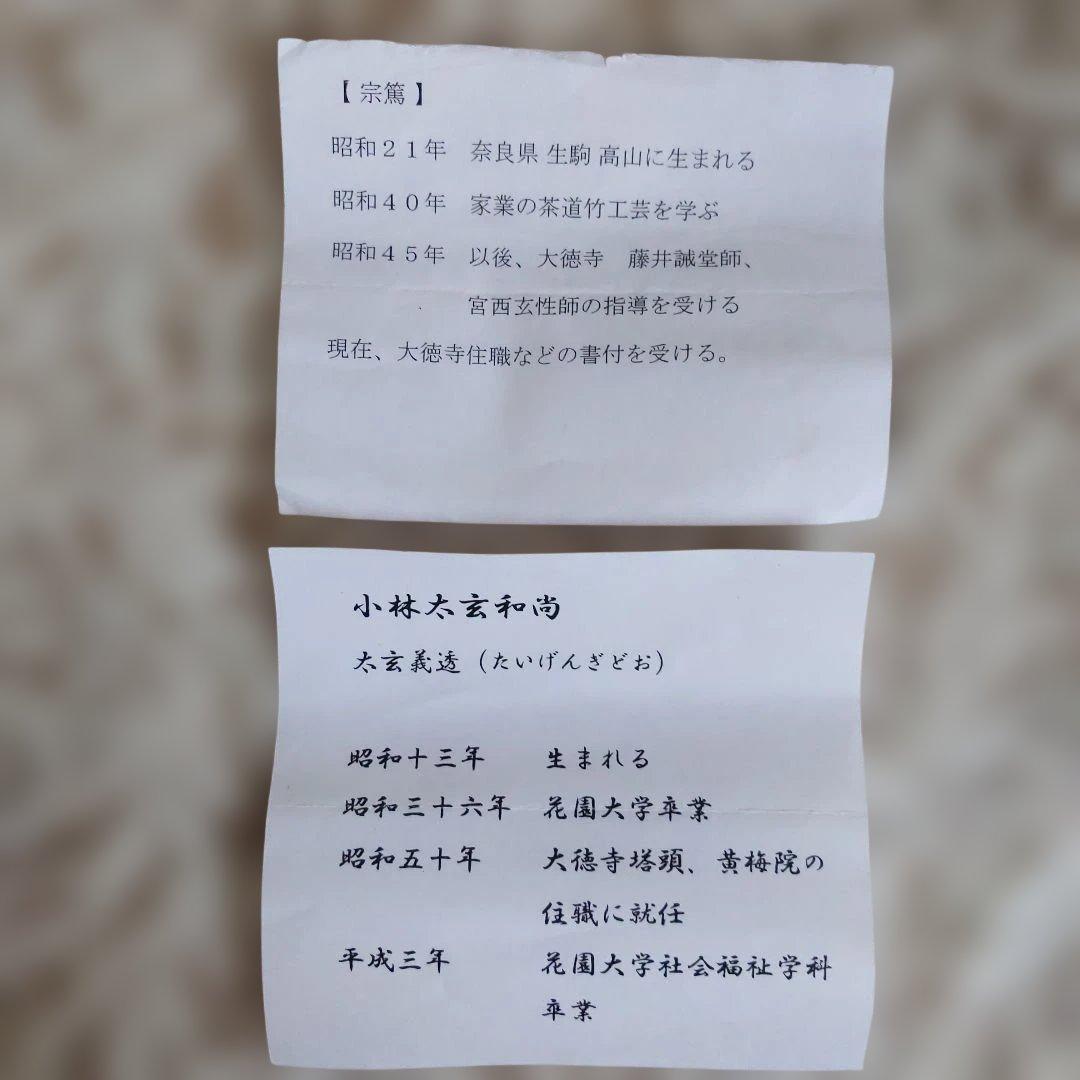 【 宗篤 】
昭和２１年　奈良県 生駒 高山に生まれる
昭和４０年　家業の茶道竹工芸を学ぶ
昭和４５年　以後、大徳寺　藤井誠堂師、
宮西玄性師の指導を受ける
現在、大徳寺住職などの書付を受ける。
小林太玄和尚
太玄義透（たいげんぎどお）
昭和十三年　生まれる
昭和三十六年　花園大学卒業
昭和五十年　大徳寺塔頭、黄梅院の
住職に就任
平成三年　花園大学社会福祉学科
卒業